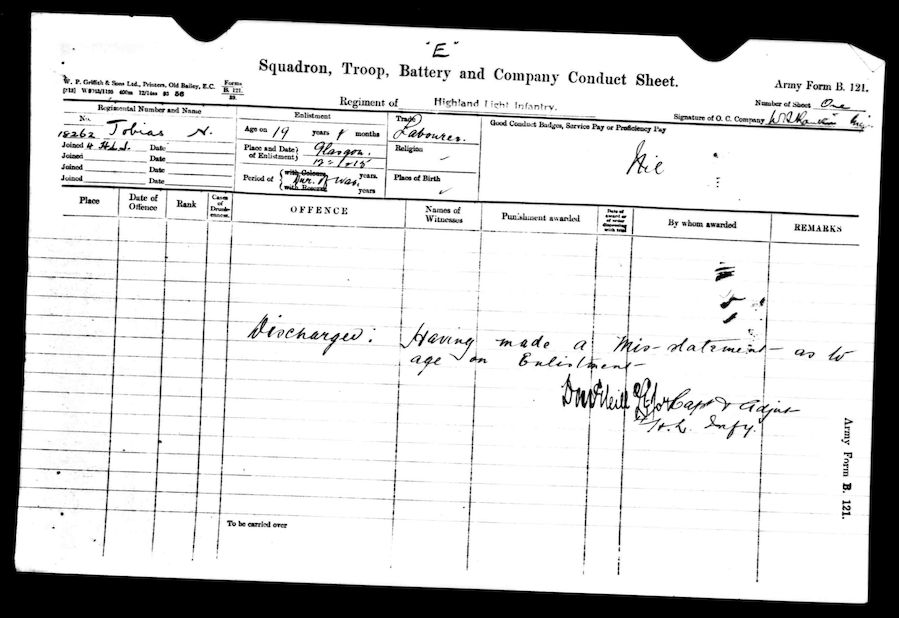 "E"
Squadron, Troop, Battery and Company Conduct Sheet.
W. P. Griffith & Sons Ltd., Printers, Old Bailey, E.C.
Forms B. 121. 39.
Army Form B. 121.
Regiment of Highland Light Infantry.
Number of Sheet One
Signature of O. C. Company
Regimental Number and Name
No. 18262 Tobias
Joined H.L.I. Date
Joined Date
Joined Date
Joined Date
Enlistment
Age on 19 years months
Place and Date of Enlistment Glasgow.
Period of with Colours Dur. of War. years.
with Reserve years
Trade Labourer
Religion ✓
Place of Birth ✓
Good Conduct Badges, Service Pay or Proficiency Pay
Place
Date of Offence
Rank
Cases of Drunkenness.
OFFENCE
Names of Witnesses
Punishment awarded
Date of award or of order dispensing with trial
By whom awarded
REMARKS
Discharged: Having made a Mis-statement as to
age on Enlistment
for Capt & Adjut
H.L. Infy.
Army Form B. 121.
To be carried over